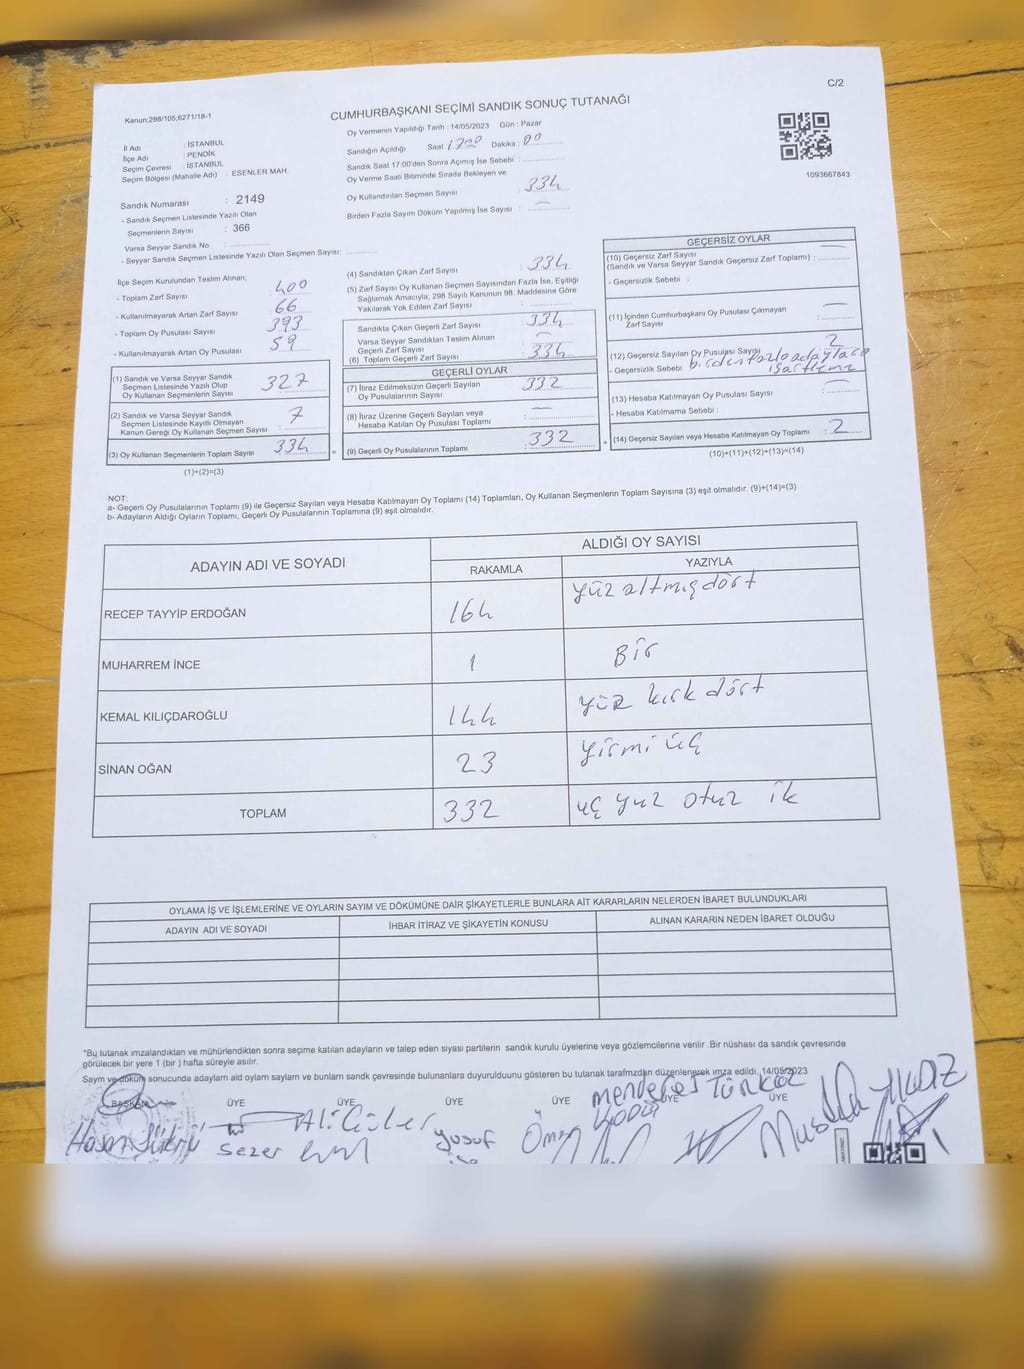 C/2
Kanun;298/105;6271/18-1
CUMHURBAŞKANI SEÇİMİ SANDIK SONUÇ TUTANAĞI
İl Adı : İSTANBUL
İlçe Adı : PENDİK
Seçim Çevresi : İSTANBUL
Seçim Bölgesi (Mahalle Adı) : ESENLER MAH.
Sandık Numarası : 2149
- Sandık Seçmen Listesinde Yazılı Olan
Seçmenlerin Sayısı : 366
Varsa Seyyar Sandık No :
- Seyyar Sandık Seçmen Listesinde Yazılı Olan Seçmen Sayısı:
Oy Vermenin Yapıldığı Tarih : 14/05/2023 Gün : Pazar
Sandığın Açıldığı Saat 1700 Dakika : 00
Sandık Saat 17:00'den Sonra Açımış İse Sebebi :
Oy Verme Saati Bitiminde Sırada Bekleyen ve
Oy Kullandırılan Seçmen Sayısı : 334
Birden Fazla Sayım Döküm Yapılmış İse Sayısı : —
1093667843
İlçe Seçim Kurulundan Teslim Alınan;
- Toplam Zarf Sayısı : 400
- Kullanılmayarak Artan Zarf Sayısı : 66
- Toplam Oy Pusulası Sayısı : 393
- Kullanılmayarak Artan Oy Pusulası : 59
(1) Sandık ve Varsa Seyyar Sandık
Seçmen Listesinde Yazılı Olup
Oy Kullanan Seçmenlerin Sayısı 327
(2) Sandık ve Varsa Seyyar Sandık
Seçmen Listesinde Kayıtlı Olmayan
Kanun Gereği Oy Kullanan Seçmen Sayısı : 7
(3) Oy Kullanan Seçmenlerin Toplam Sayısı 334
(1)+(2)=(3)
=
(4) Sandıktan Çıkan Zarf Sayısı : 334
(5) Zarf Sayısı Oy Kullanan Seçmen Sayısından Fazla İse, Eşitliği
Sağlamak Amacıyla; 298 Sayılı Kanunun 98. Maddesine Göre
Yakılarak Yok Edilen Zarf Sayısı :
Sandıkta Çıkan Geçerli Zarf Sayısı : 334
Varsa Seyyar Sandıktan Teslim Alınan
Geçerli Zarf Sayısı : —
(6) Toplam Geçerli Zarf Sayısı : 334
GEÇERLİ OYLAR
(7) İtiraz Edilmeksizin Geçerli Sayılan
Oy Pusulalarının Sayısı : 332
(8) İtiraz Üzerine Geçerli Sayılan veya
Hesaba Katılan Oy Pusulası Toplamı : —
(9) Geçerli Oy Pusulalarının Toplamı : 332
+
GEÇERSİZ OYLAR
(10) Geçersiz Zarf Sayısı —
(Sandık ve Varsa Seyyar Sandık Geçersiz Zarf Toplamı) :
- Geçersizlik Sebebi :
(11) İçinden Cumhurbaşkanı Oy Pusulası Çıkmayan
Zarf Sayısı : —
(12) Geçersiz Sayılan Oy Pusulası Sayısı : 2
- Geçersizlik Sebebi birden fazla adaylara
işaretleme
(13) Hesaba Katılmayan Oy Pusulası Sayısı : —
- Hesaba Katılmama Sebebi :
(14) Geçersiz Sayılan veya Hesaba Katılmayan Oy Toplamı : 2
(10)+(11)+(12)+(13)=(14)
NOT:
a- Geçerli Oy Pusulalarının Toplamı (9) ile Geçersiz Sayılan veya Hesaba Katılmayan Oy Toplamı (14) Toplamları, Oy Kullanan Seçmenlerin Toplam Sayısına (3) eşit olmalıdır. (9)+(14)=(3)
b- Adayların Aldığı Oyların Toplamı, Geçerli Oy Pusulalarının Toplamına (9) eşit olmalıdır.
ADAYIN ADI VE SOYADI
ALDIĞI OY SAYISI
RAKAMLA YAZIYLA
RECEP TAYYİP ERDOĞAN 164 yüz altmış dört
MUHARREM İNCE 1 Bir
KEMAL KILIÇDAROĞLU 144 yüz kırk dört
SİNAN OĞAN 23 yirmi üç
TOPLAM 332 üç yuz otuz ik
OYLAMA İŞ VE İŞLEMLERİNE VE OYLARIN SAYIM VE DÖKÜMÜNE DAİR ŞİKAYETLERLE BUNLARA AİT KARARLARIN NELERDEN İBARET BULUNDUKLARI
ADAYIN ADI VE SOYADI İHBAR İTİRAZ VE ŞİKAYETİN KONUSU ALINAN KARARIN NEDEN İBARET OLDUĞU
*Bu tutanak imzalandıktan ve mühürlendikten sonra seçime katılan adayların ve talep eden siyasi partilerin sandık kurulu üyelerine veya gözlemcilerine verilir .Bir nüshası da sandık çevresinde
görülecek bir yere 1 (bir ) hafta süreyle asılır.
Sayım ve döküm sonucunda adayların aldı oyların sayıları ve bunların sandk çevresinde bulunanlara duyurulduunu gösteren bu tutanak tarafmzdan düzenlenerek imza edildi. 14/05/2023
BAŞKAN ÜYE ÜYE ÜYE ÜYE ÜYE ÜYE
Hasan Şükrü
Sezer
Ali Güler
Yusuf
Ömer
Menderes Türköz
Mustafa YILDIZ